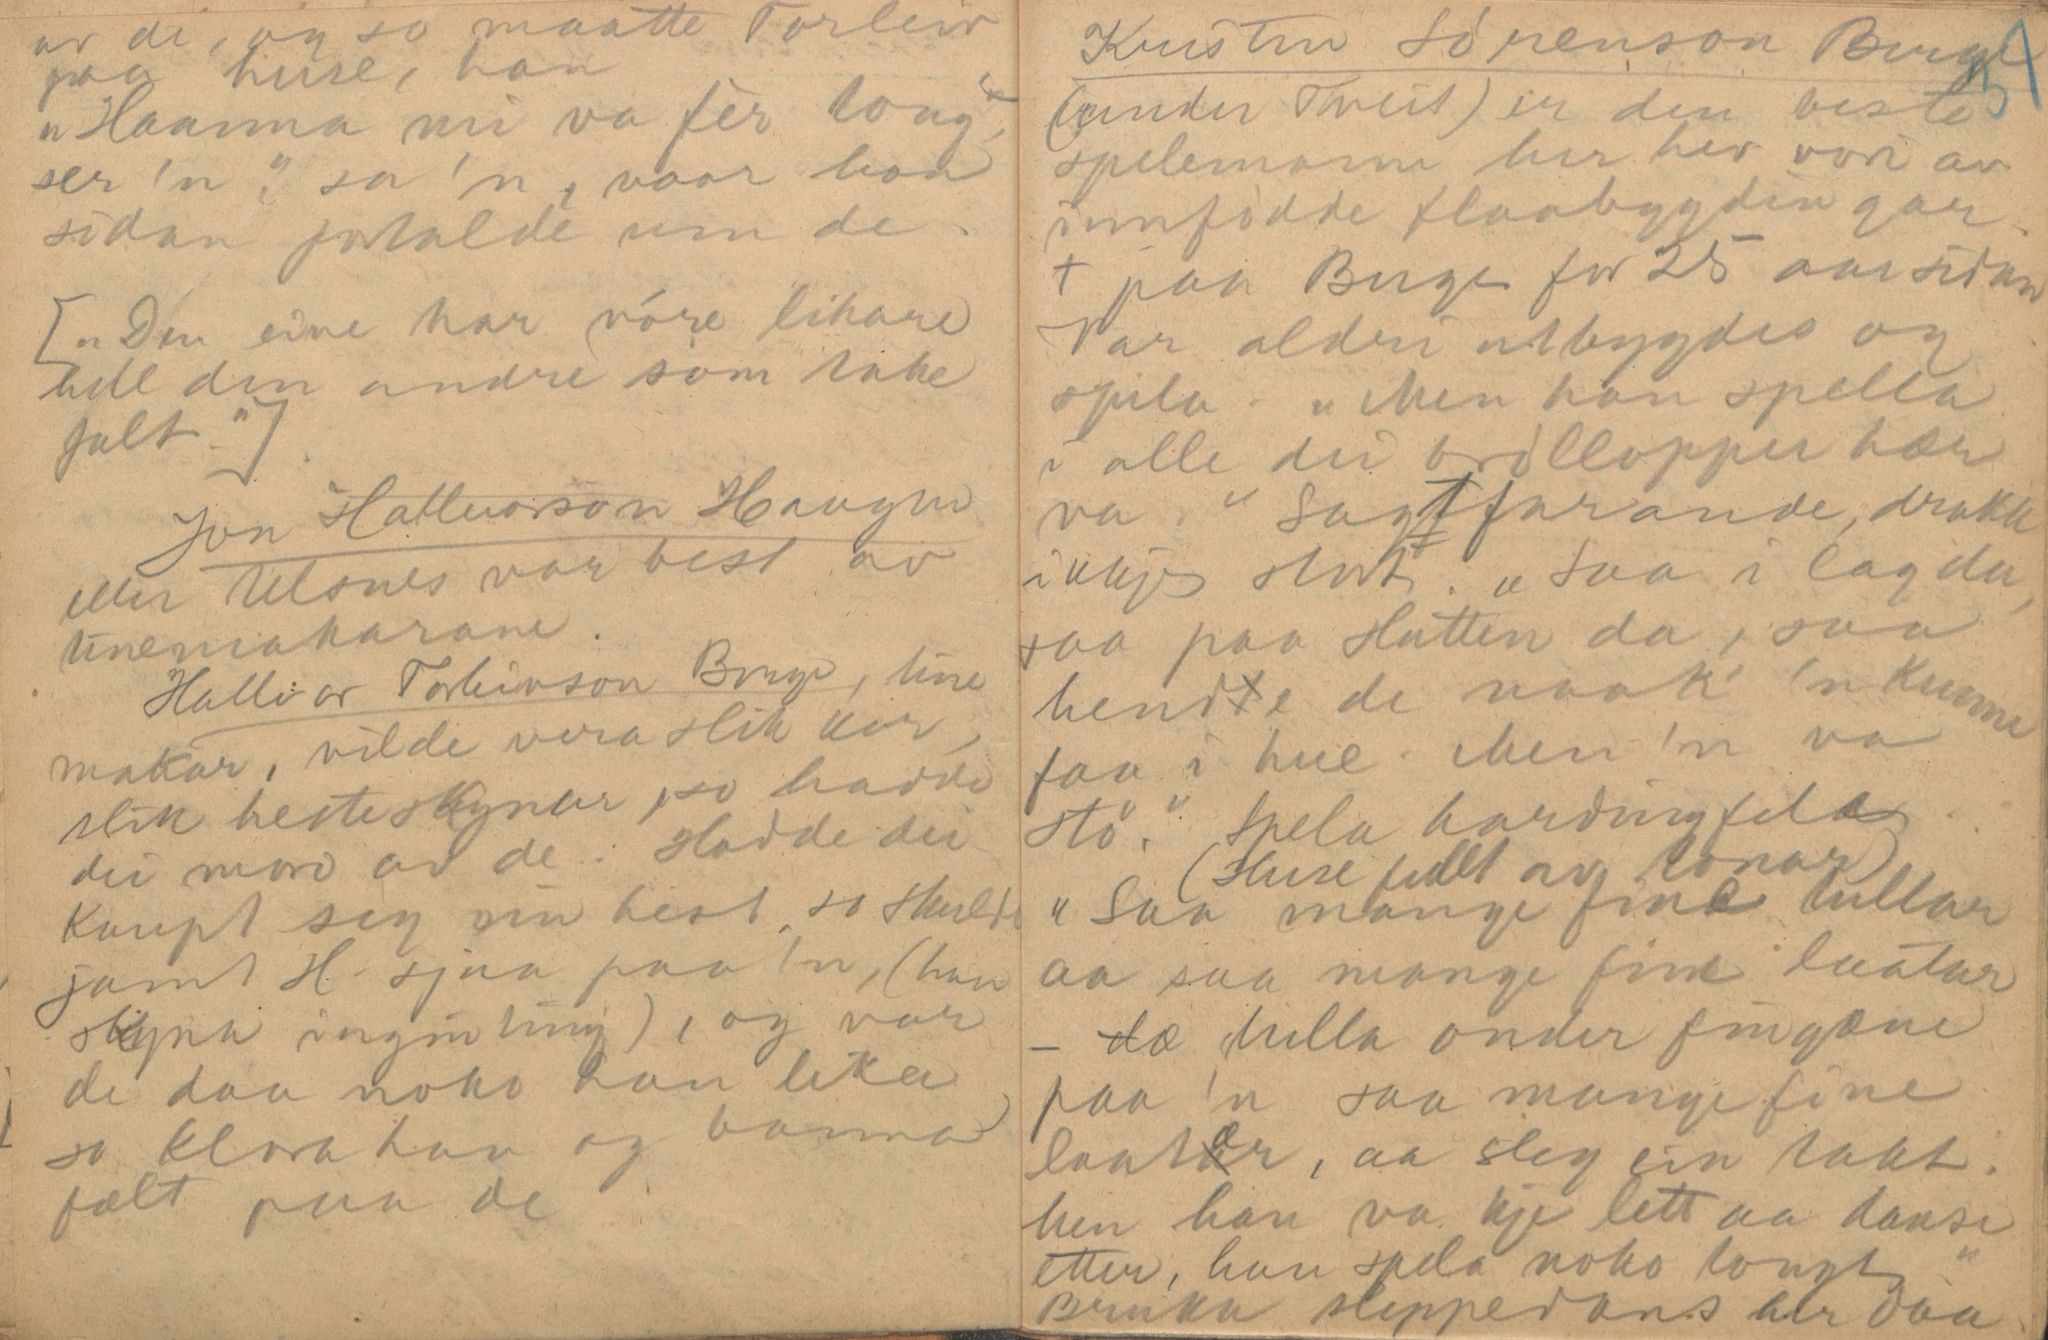 av di, og so maatte Torleiv
paa huse, han
"Haanna mi va fèr tong",
ser 'n," sa 'n, naar han
sidan fortalde um de.
["Den eine har vóre likare
hell den andre som take
falt."]
Jon Hallvorson Haugen
eller Ulsnes var best av
tinemakarane.
Hallvor Torleivson Berge, tine
makar, vilde vera slik kar,
slik hesteskynar, so hadde
dei moro av de. Hadde dei
kaupt seg ein hest, so skulde
jamt H. sjaa paa 'n, (han
skyna ingin ting), og var
de daa noko han lika
so klora han og banna
fælt paa de
51
Kristen Sörenson Berge
(under Tveit) er den beste
spelemann her hev vori av
innfödde flaabyggdingar.
† paa Berge for 25 aar sidan
Var aldri utbygdes og
spela. "Men han spella
i alle dei bröllopper hær
va." Sagtfarande, drakk
ikkje stort. "Saa i lag da,
saa paa Hatten da, saa
hende de naak 'n kunne
faa i hue. Men 'n va
stö." Spela hardingfela
(Huse fullt av tonar)
"Saa mange fine tullar
aa saa mange fine laatar
- dæ tulla onder fingæne
paa 'n saa mange fine
laatar, aa sleg ein takt.
Men han va kje lett aa danse
etter, han spela noko tongt."
Bruka sleppedans her daa